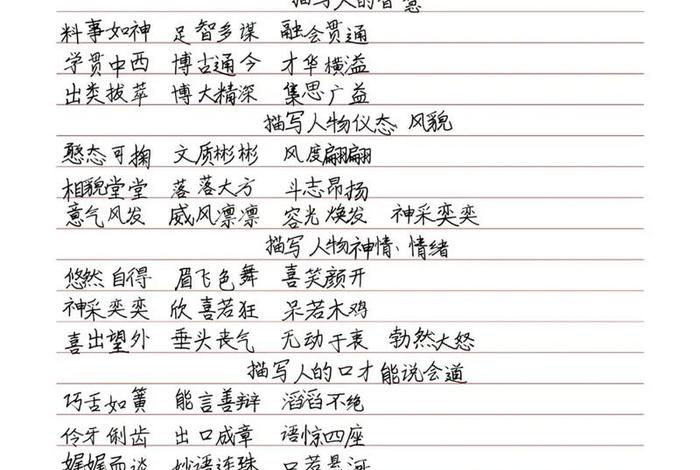 描写人的智慧
料事如神 足智多谋 融会贯通
学贯中西 博古通今 才华横溢
出类拔萃 博大精深 集思广益
描写人物仪态、风貌
憨态可掬 文质彬彬 风度翩翩
相貌堂堂 落落大方 斗志昂扬
意气风发 威风凛凛 容光焕发 神采奕奕
描写人物神情、情绪
悠然自得 眉飞色舞 喜笑颜开
神采奕奕 欣喜若狂 呆若木鸡
喜出望外 垂头丧气 无动于衷 勃然大怒
描写人的口才能说会道
巧舌如簧 能言善辩 滔滔不绝
伶牙俐齿 出口成章 语惊四座
娓娓而谈 妙语连珠 口若悬河